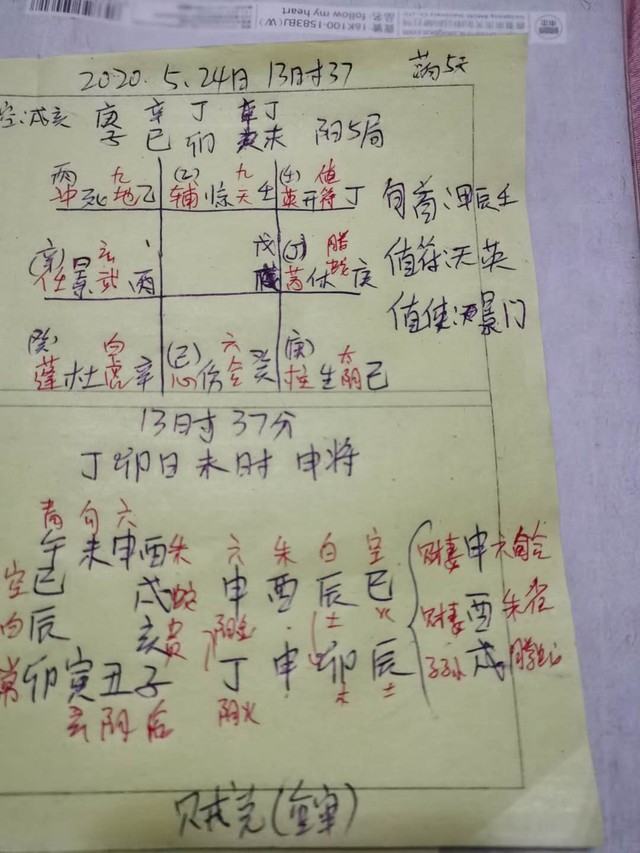 品名:follow my heart
16K100-1583BJ(W)
2020.5.24日 13时37
空:戌亥 庚 辛 丁 丁
子 巳 卯 未 阴5局
丙 九
冲死地乙
(乙) 九
辅惊天壬
值
英开符丁
旬首:甲辰壬
玄
任景武丙
戊
腾
芮休蛇庚
值符:天英
值使:景门
癸 白
蓬杜虎辛
(己) 六
心伤合癸
(庚) 太
柱生阴己
13时37分
丁卯日未时 申将
青 勾 六
午未申酉朱 六 朱 白 空 财妻申六合
空巳 戌蛇 申 酉 辰 巳
白辰 亥贵 阳金 土 火 财妻酉朱雀
常卯寅丑子 丁 申 卯 辰 子孙戌腾蛇
玄 阴 后 阴火 木 土